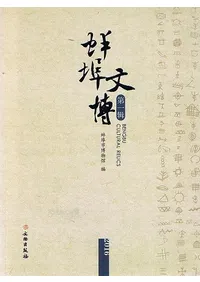 蚌埠文博
第一辑
BENGBU
CULTURAL RELICS
蚌埠市博物馆 编
2016
文物出版社